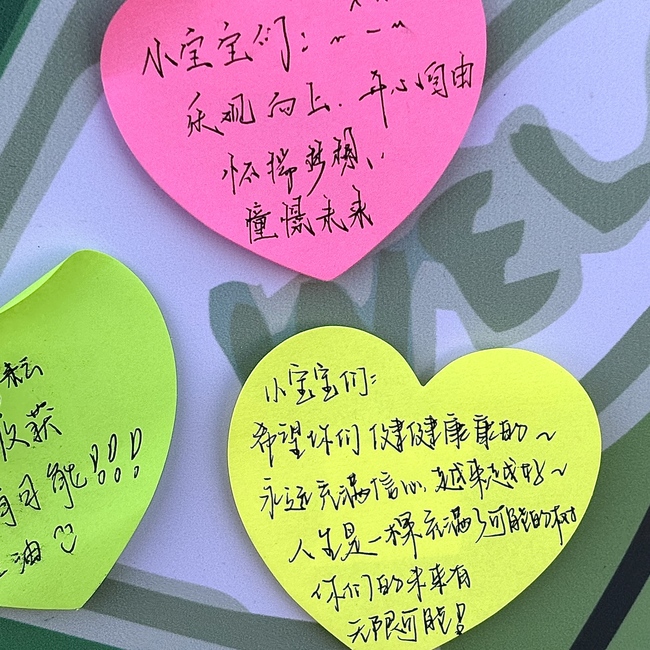 小宝宝们:
乐观向上. 开心自由
怀揣梦想,
憧憬未来
小宝宝们:
希望你们健健康康的~
永远充满信心, 越来越好~
人生是一棵充满了可能的树
你们的未来有
无限可能!
耘
收获
有可能!!!
油
WEL